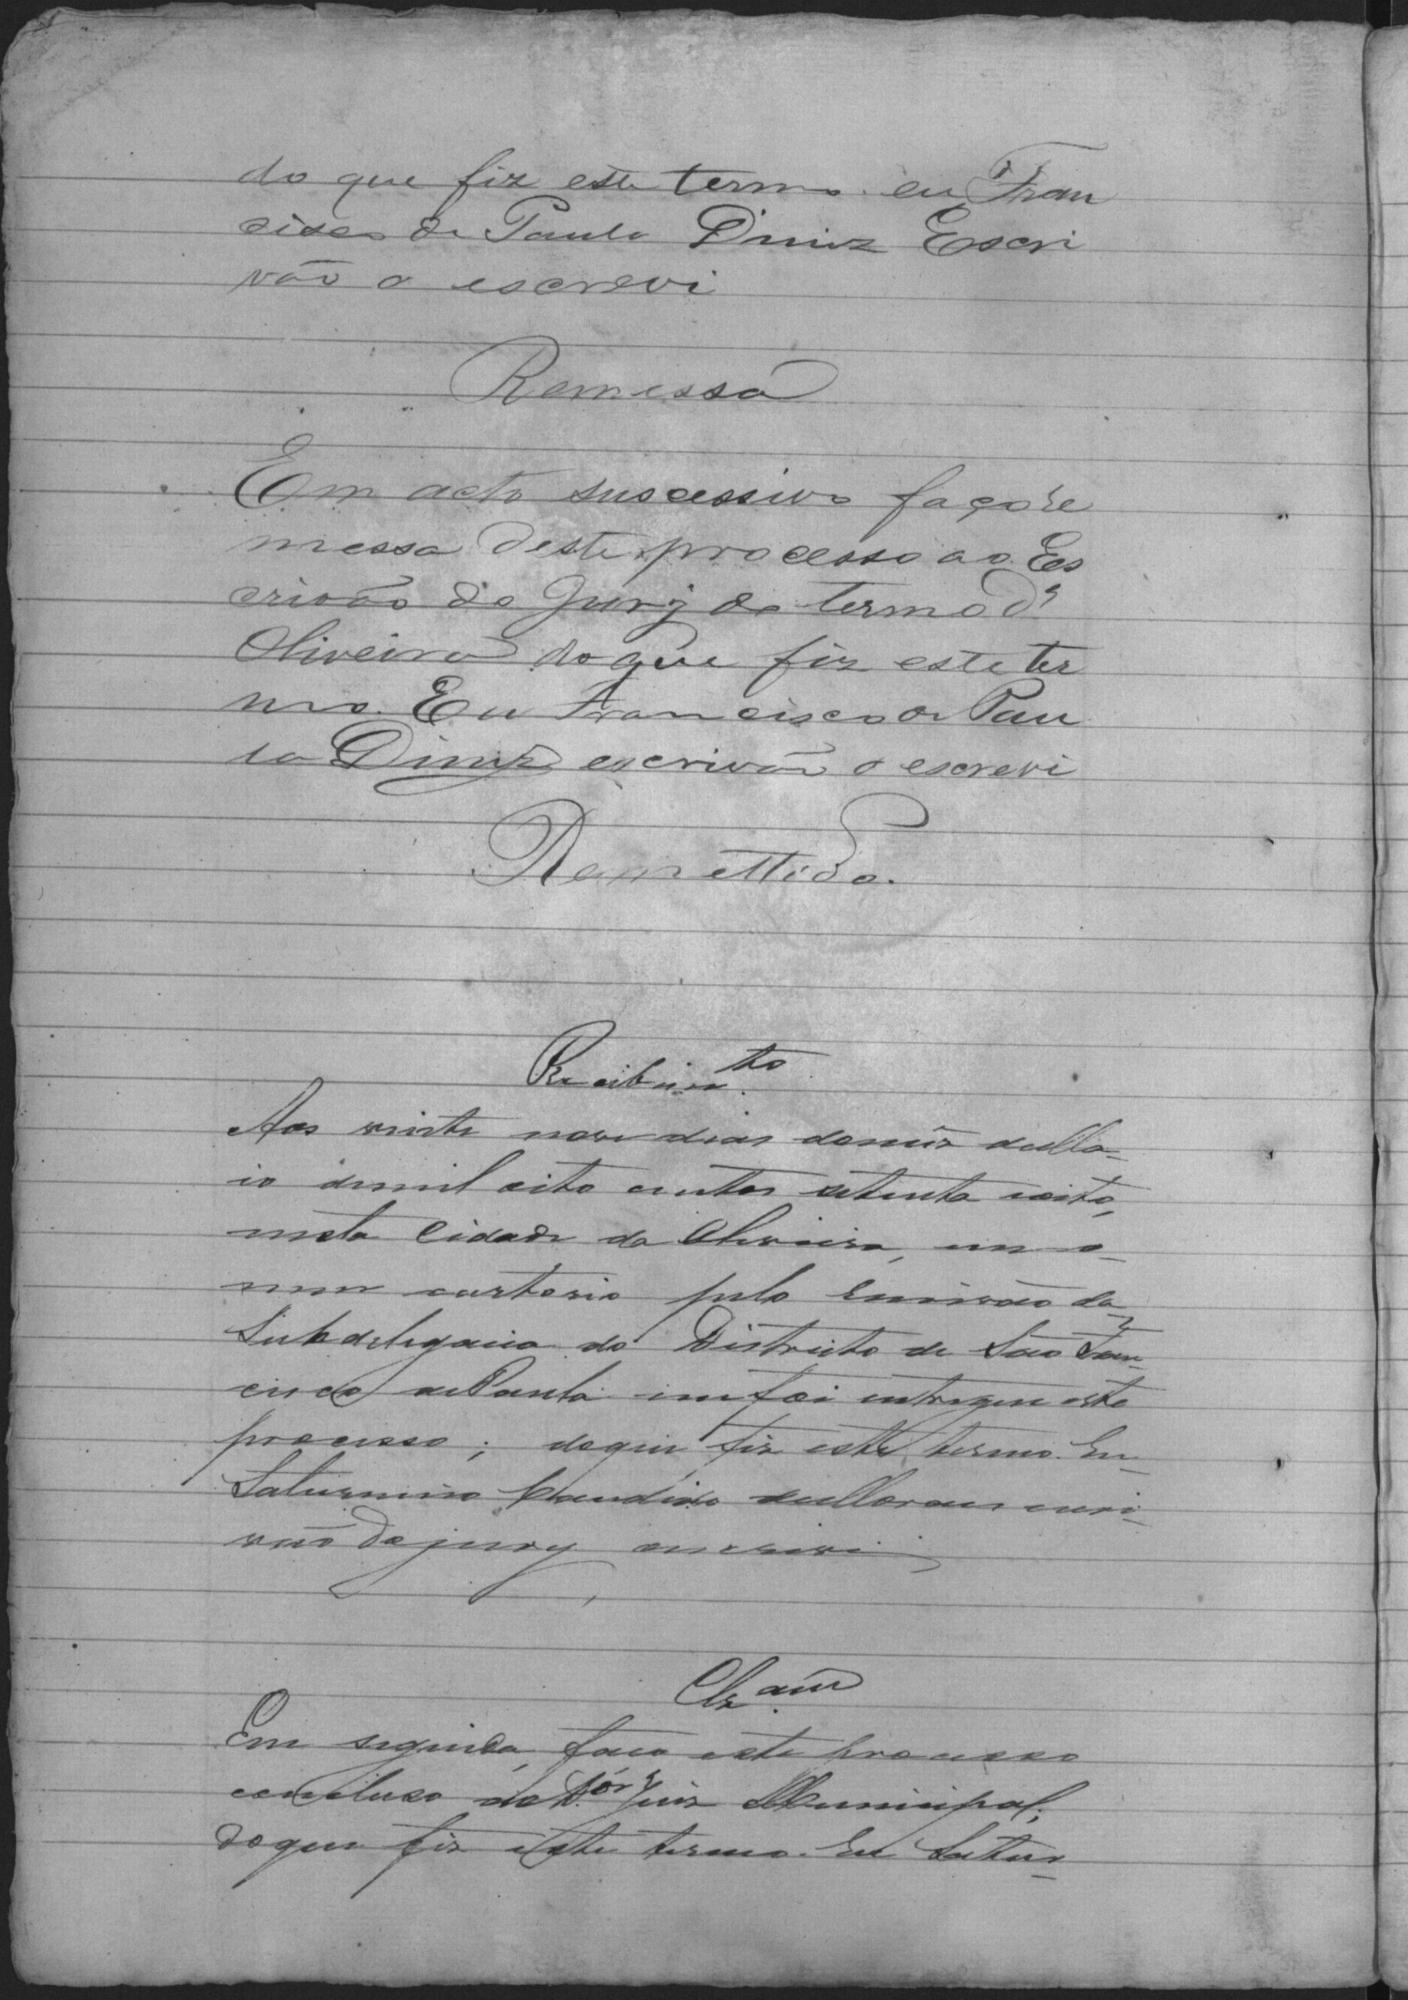 do que fiz este termo. eu Fran
cisco de Paula Diniz Escri
vão o escrevi
Remessa
Em acto successivo faço re
messa deste processo ao Es
crivão do Jury do termo d'
Oliveira do que fiz este ter
mo. Eu Francisco de Pau
la Diniz escrivão o escrevi
Remettido.
Recebim.to
Aos vinte nove dias do mês de Ma-
io de mil oito centos setenta e oito,
nesta Cidade da Oliveira, em o
meu cartorio pelo Escrivão da
Subdelegacia do Districto de São Fran-
cisco de Paula me foi entregue este
processo; do que fiz este termo. Eu
Saturnino Candido de Moraes escri-
vão do jury o escrevi
Cls.am
Em seguida, faço este processo
concluso ao D.or Juiz Municipal;
do que fiz este termo. Eu Satur-